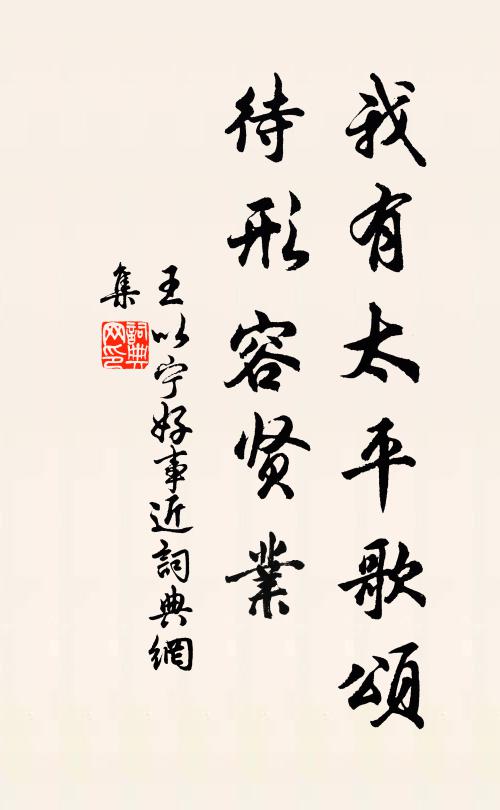 我有太平歌頌
待形容贤業
王以宁好事近詞典網
集
詞典
网印